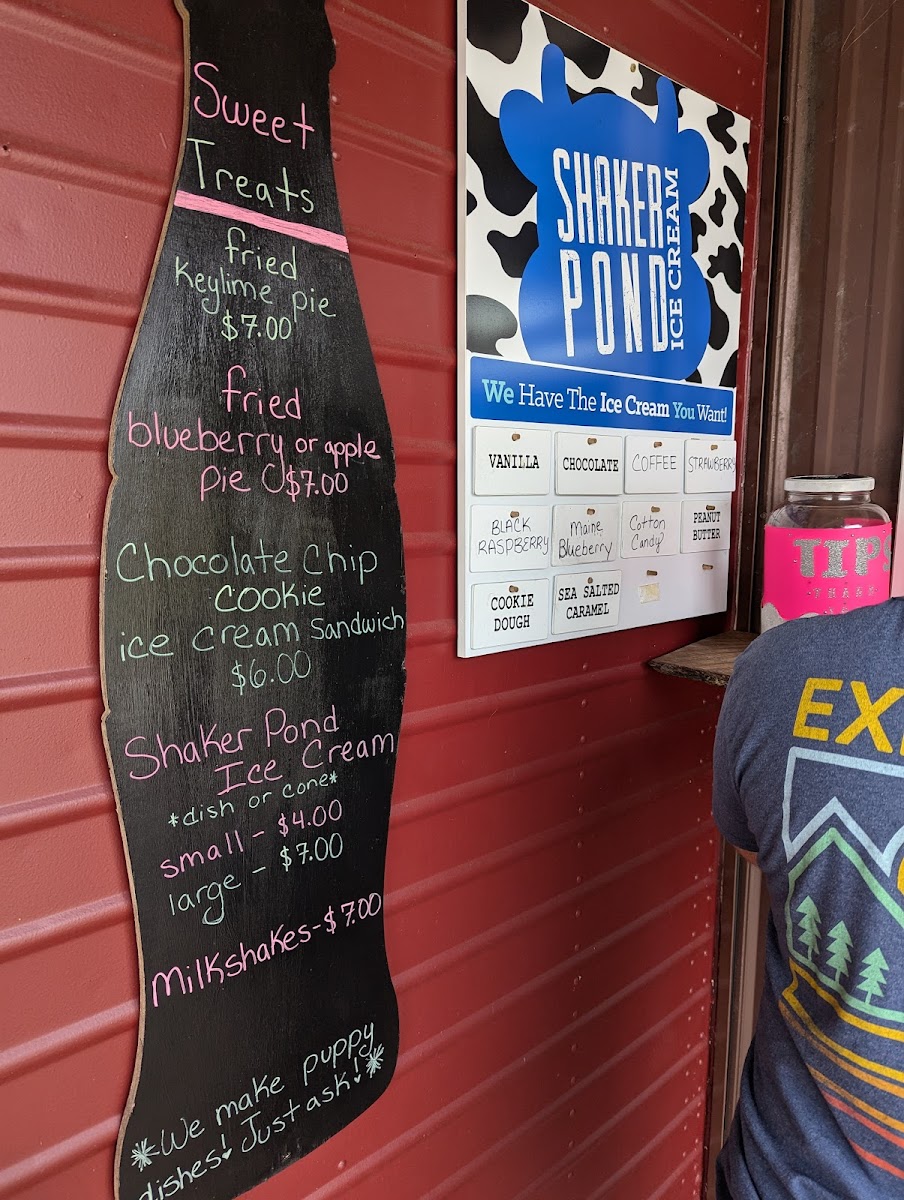 Sweet
Treats
fried
Keylime pie
$7.00
fried
blueberry or apple
pie $7.00
Chocolate Chip
cookie
ice cream sandwich
$6.00
Shaker Pond
Ice Cream
*dish or cone*
small - $4.00
large - $7.00
Milkshakes - $7.00
*We make puppy
dishes! Just ask!*
SHAKER
POND
ICE CREAM
We Have The Ice Cream You Want!
VANILLA
CHOCOLATE
COFFEE
STRAWBERRY
BLACK
RASPBERRY
Maine
Blueberry
Cotton
Candy
PEANUT
BUTTER
COOKIE
DOUGH
SEA SALTED
CARAMEL
TIPS
EX